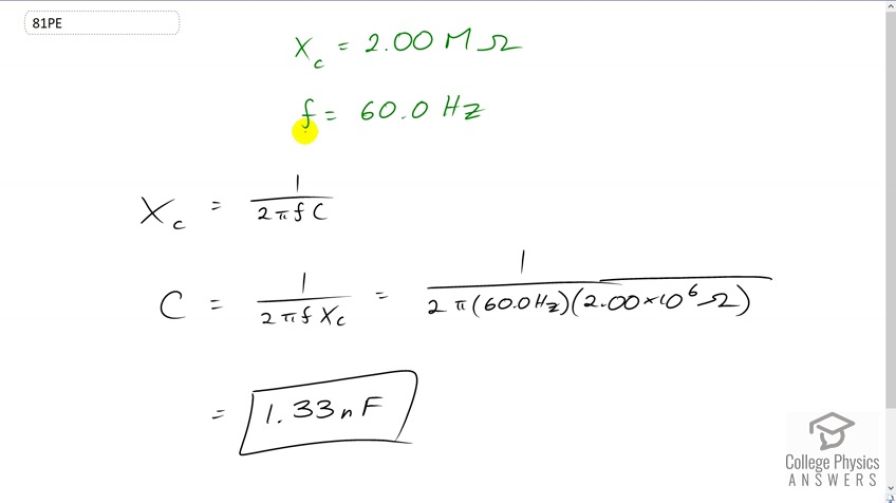 81PE
X_c = 2.00 MΩ
f = 60.0 Hz
X_c = 1/(2πfC)
C = 1/(2πf X_c) = 1/(2π(60.0Hz)(2.00×10⁶Ω))
= 1.33nF
College Physics
ANSWERS